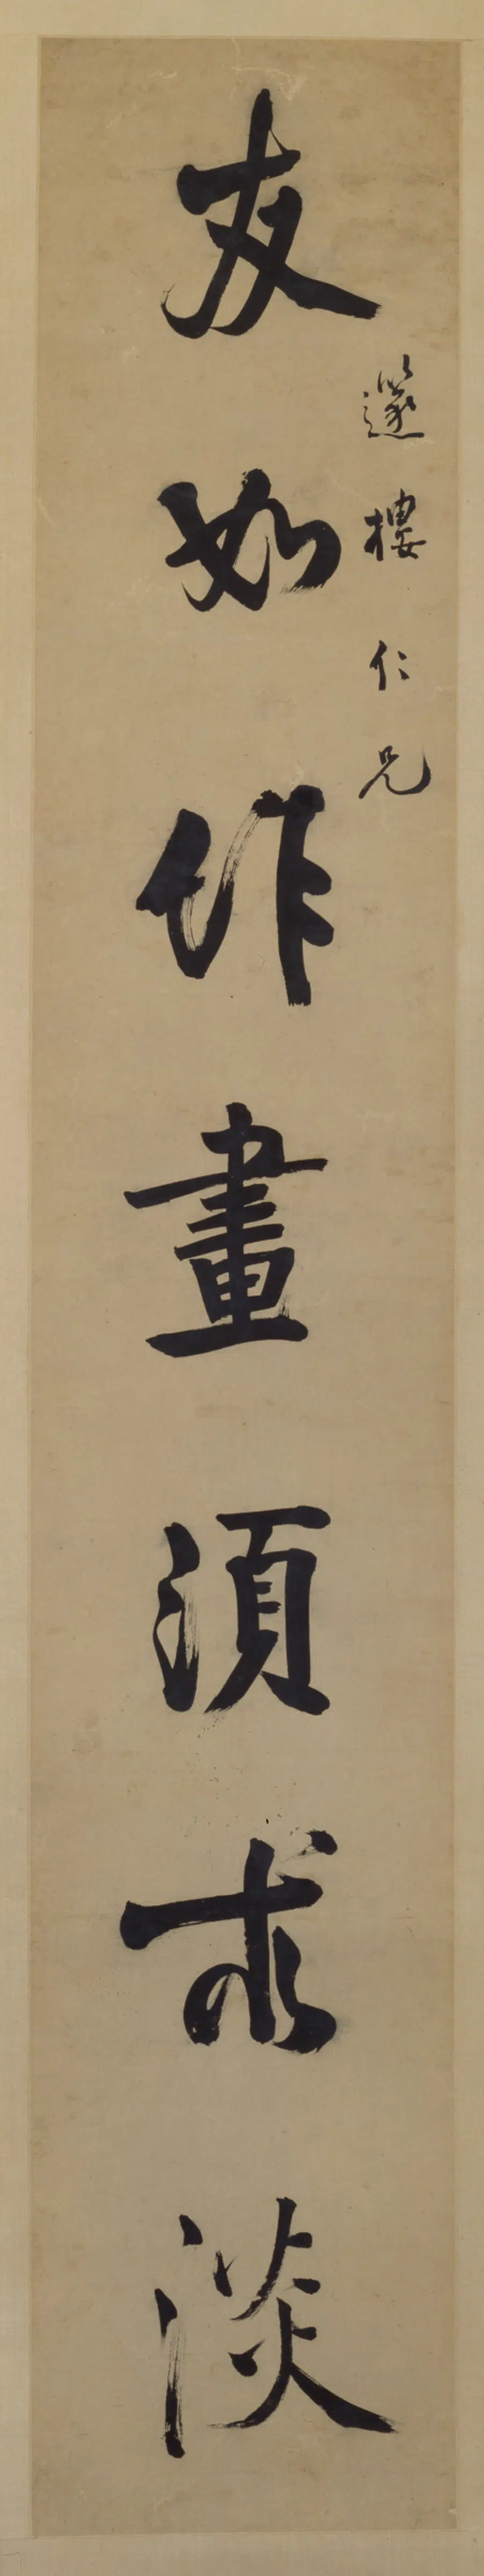 邃樓仁兄
友如作畫須求淡